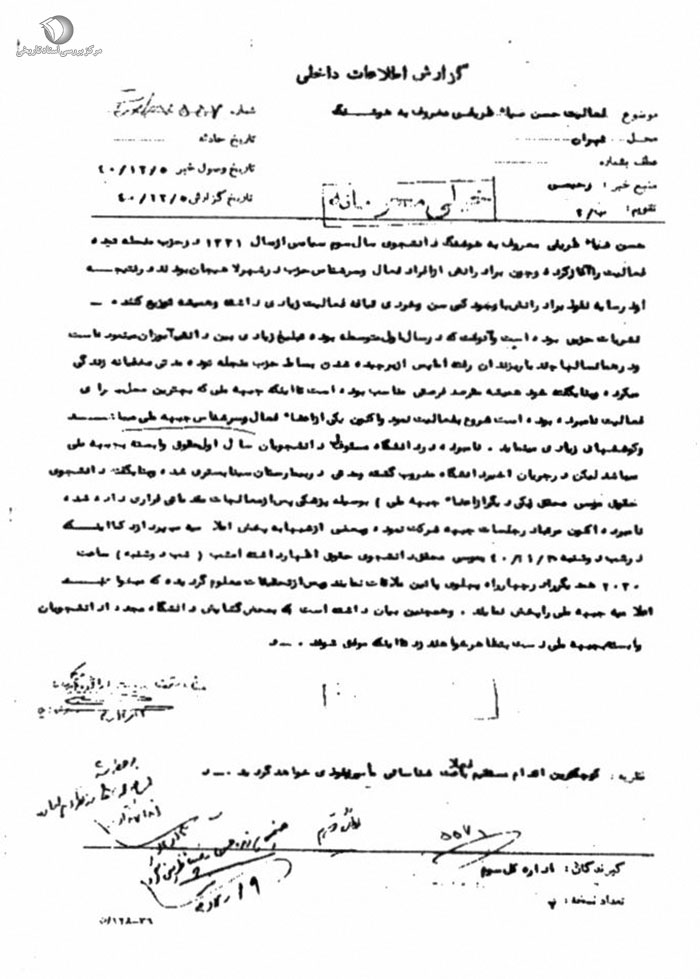 مرکز بررسی اسناد تاریخی
گزارش اطلاعات داخلی
موضوع: فعالیت حسن ضیاء ظریفی معروف به هوشنگ
شماره
محل: تهران
تاریخ حادثه
عطف بشماره
تاریخ وصول خبر ۴۰/۱۲/۵
منبع خبر: رحیمی
تاریخ گزارش ۴۰/۱۲/۵
تقویم: ب/۲
خیلی محرمانه
حسن ضیاء ظریفی معروف به هوشنگ دانشجوی سال سوم سیاسی از سال ۱۳۳۱ در حزب منحله توده
فعالیت را آغاز کرده و چون برادرانش از افراد فعال و سرشناس حزب در شهر لاهیجان بودند در نتیجه
او در سایه نفوذ برادرانش با وجود کمی سن و خردی قیافه فعالیت زیادی داشته و همیشه توزیع کننده
نشریات حزبی بوده است و آنوقت که در سال اول متوسطه بوده تبلیغ زیادی بین دانش آموزان مینموده است
و در همانسالها چند بار بزندان رفته اما پس از برچیده شدن بساط حزب منحله توده مدتی مخفیانه زندگی
میکرده و بنا بگفته خود همیشه مترصد فرصتی مناسب بوده است تا اینکه جبهه ملی که بهترین محل برای
فعالیت نامبرده بوده است شروع بفعالیت نمود و اکنون یکی از اعضاء فعال و سرشناس جبهه ملی میباشد
و کوششهای زیادی مینماید. نامبرده در دانشگاه مسئول دانشجویان سال اول حقوق وابسته بجبهه ملی
میباشد لیکن در جریان اخیر دانشگاه مضروب گشته و مدتی در بیمارستان سینا بستری شده و بنا بگفته دانشجوی
حقوق موسی محقق (یکی دیگر از اعضاء جبهه ملی) بوسیله پزشکی پس از معالجات مقدماتی فراری داده شده
نامبرده اکنون مرتباً در جلسات جبهه شرکت نموده و بعضی از شبها به پخش اعلامیه میپردازد کما اینکه
در شب دوشنبه ۴۰/۱۱/۳۰ بموسی محقق دانشجوی حقوق اظهار داشته امشب (شب دوشنبه) ساعت
۲۰۳۰ همدیگر را در چهارراه پهلوی پائین ملاقات نمایند و پس از تحقیقات معلوم گردیده که میخواستند
اعلامیه جبهه ملی را پخش نمایند. و همچنین بیان داشته است که بمحض گشایش دانشگاه مجدداً دانشجویان
وابسته بجبهه ملی دست بتظاهر خواهند زد تا اینکه موفق شوند. د
نظریه: کوچکترین اقدام مستقیم باعث شناسائی مأمور نفوذی خواهد گردید. د
۵۵۷۶
گیرندگان: اداره کل سوم
تعداد نسخه: ۲